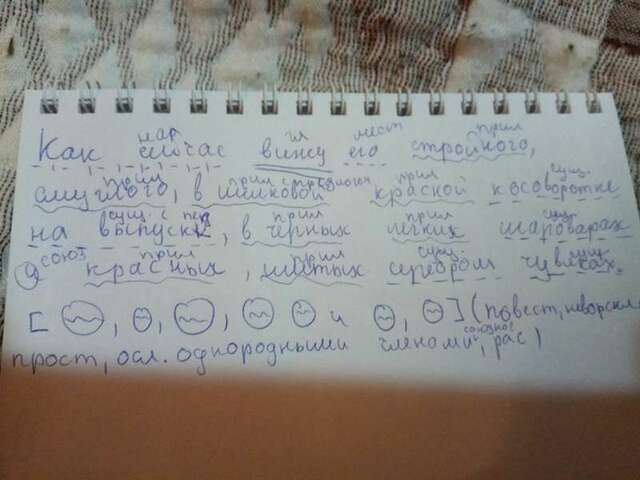 нар гл мест прил
Как сейчас вижу его стройного,
прил прил с предлогом прил сущ.
смуглого, в шелковой красной косоворотке
сущ. с пред прил прил сущ
на выпуск, в чёрных легких шароварах
союз прил прил сущ сущ
и красных, шитых серебром чувяках.
[ , , , и , ] (повест, невоскл
прост, осл. однородными членами, союзное, рас)